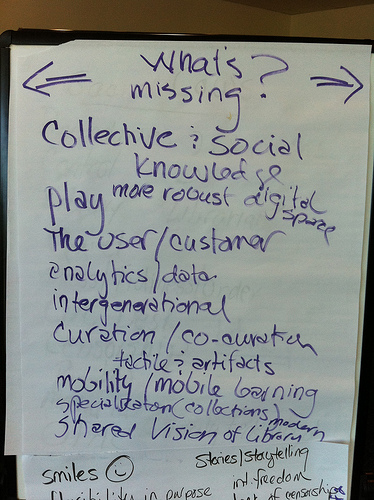 What's
missing?
Collective & Social
Knowledge
play more robust digital
space
The user/customer
analytics/data
intergenerational
Curation/co-curation
tactile & artifacts
mobility/mobile learning
specialization (collections)
modern
Shared Vision of Library
Stories/storytelling
smiles
int. freedom
in purpose
of censorship